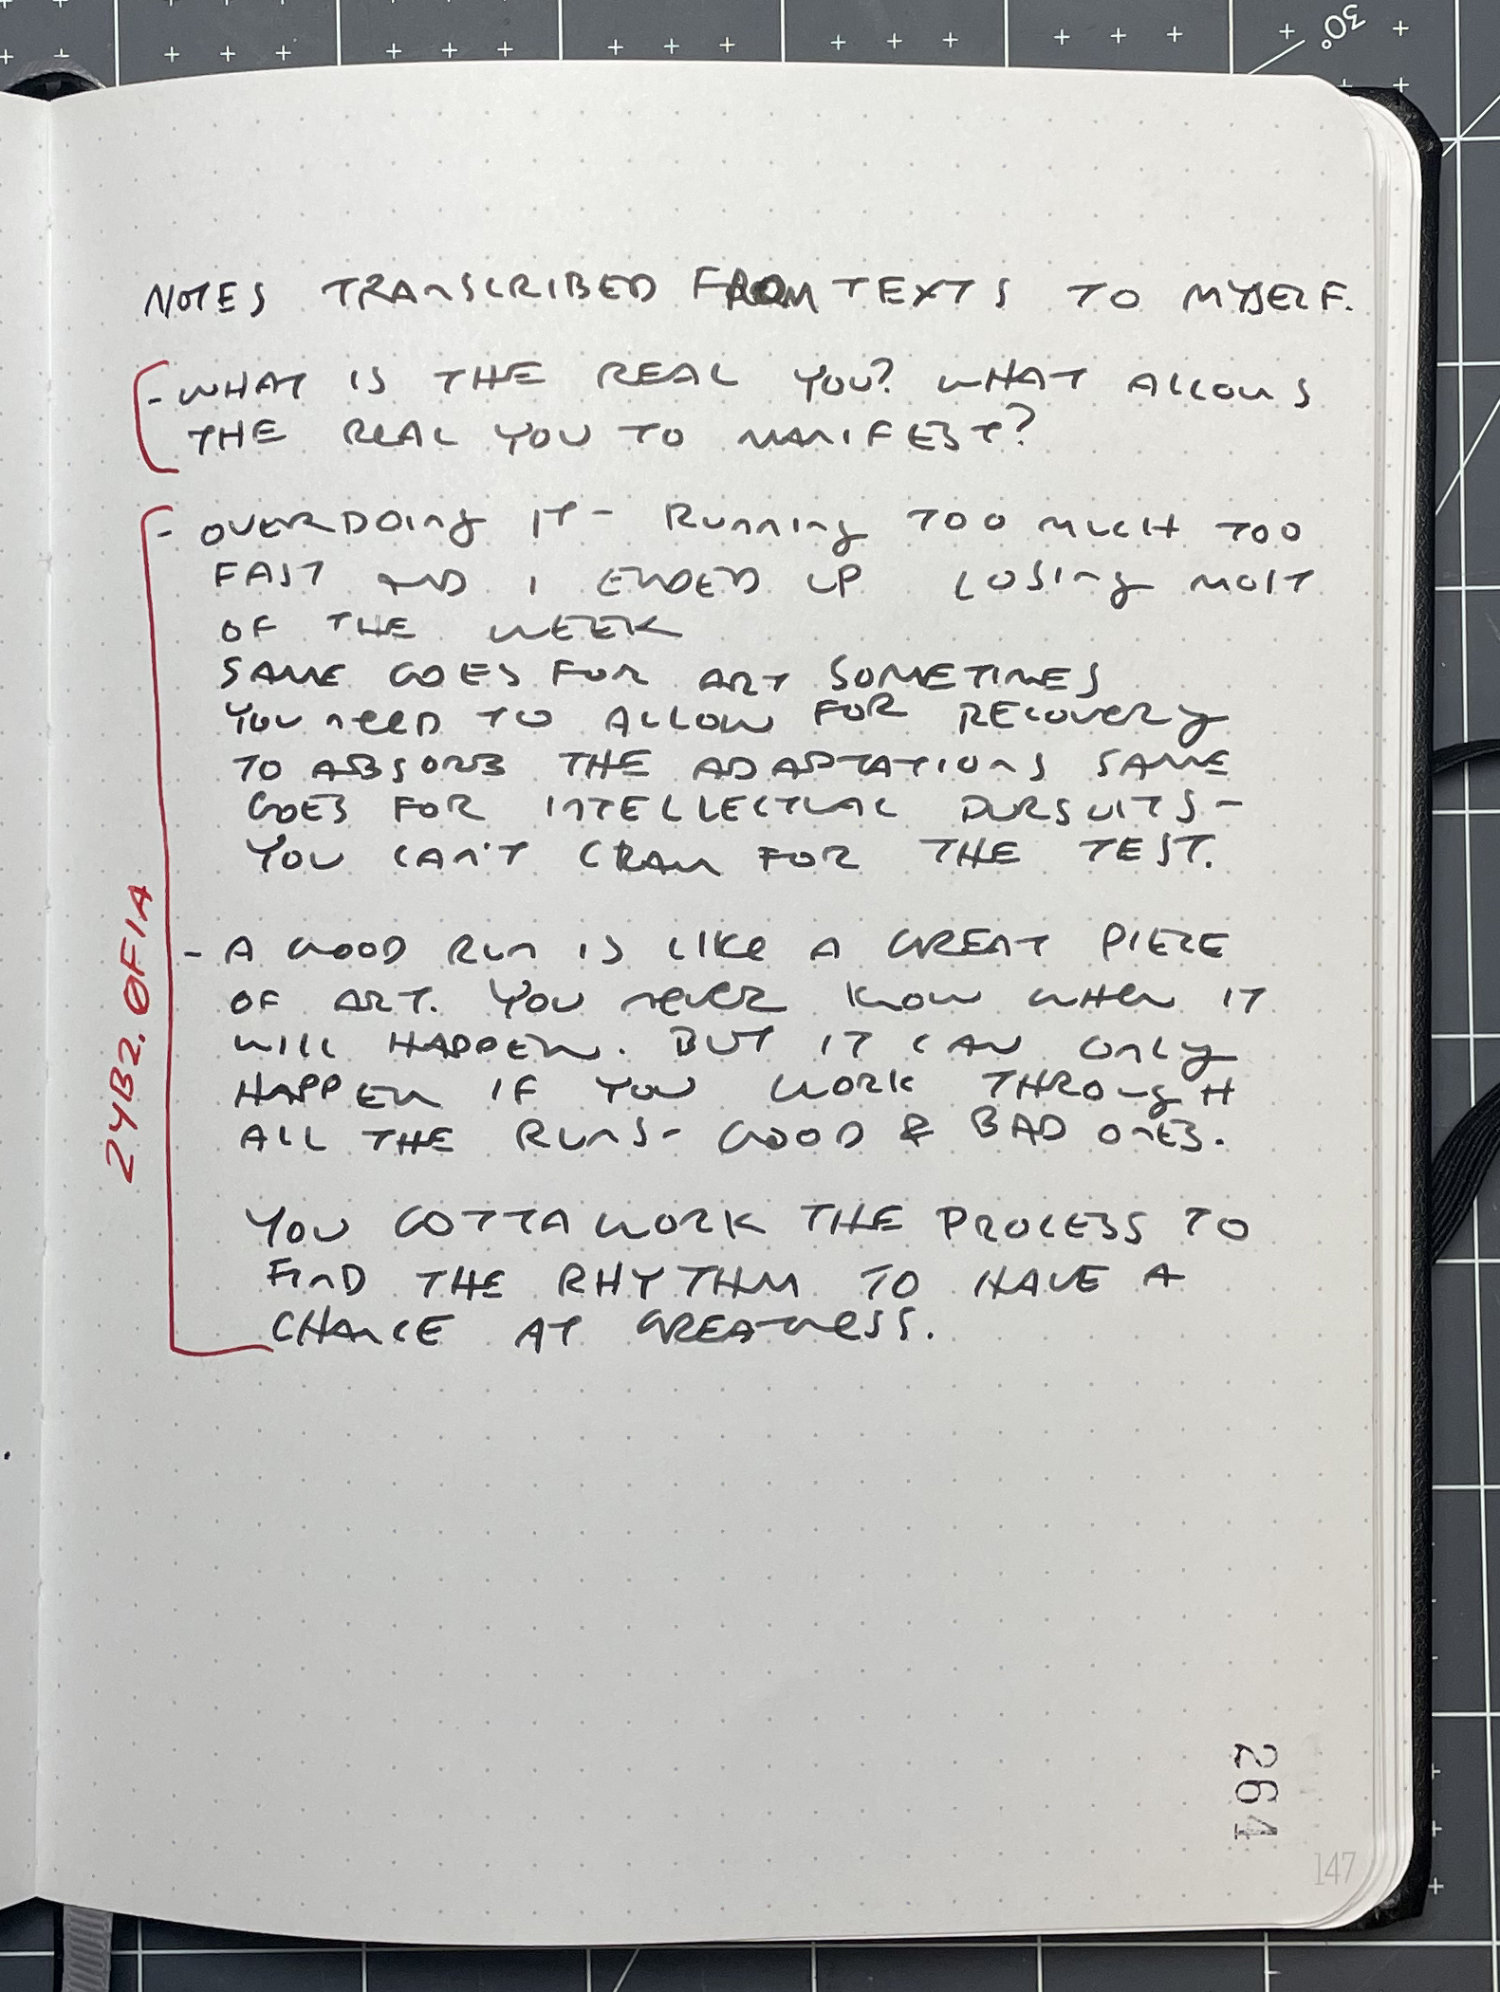 NOTES TRANSCRIBED FROM TEXTS TO MYSELF.
- WHAT IS THE REAL YOU? WHAT ALLOWS
THE REAL YOU TO MANIFEST?
- OVERDOING IT - RUNNING TOO MUCH TOO
FAST AND I ENDED UP LOSING MOST
OF THE WEEK
SAME GOES FOR ART SOMETIMES
YOU NEED TO ALLOW FOR RECOVERY
TO ABSORB THE ADAPTATIONS SAME
GOES FOR INTELLECTUAL PURSUITS -
YOU CAN'T CRAM FOR THE TEST.
- A GOOD RUN IS LIKE A GREAT PIECE
OF ART. YOU NEVER KNOW WHEN IT
WILL HAPPEN. BUT IT CAN ONLY
HAPPEN IF YOU WORK THROUGH
ALL THE RUNS - GOOD & BAD ONES.
YOU GOTTA WORK THE PROCESS TO
FIND THE RHYTHM TO HAVE A
CHANCE AT GREATNESS.
24B2.0F1A
264
147
30°